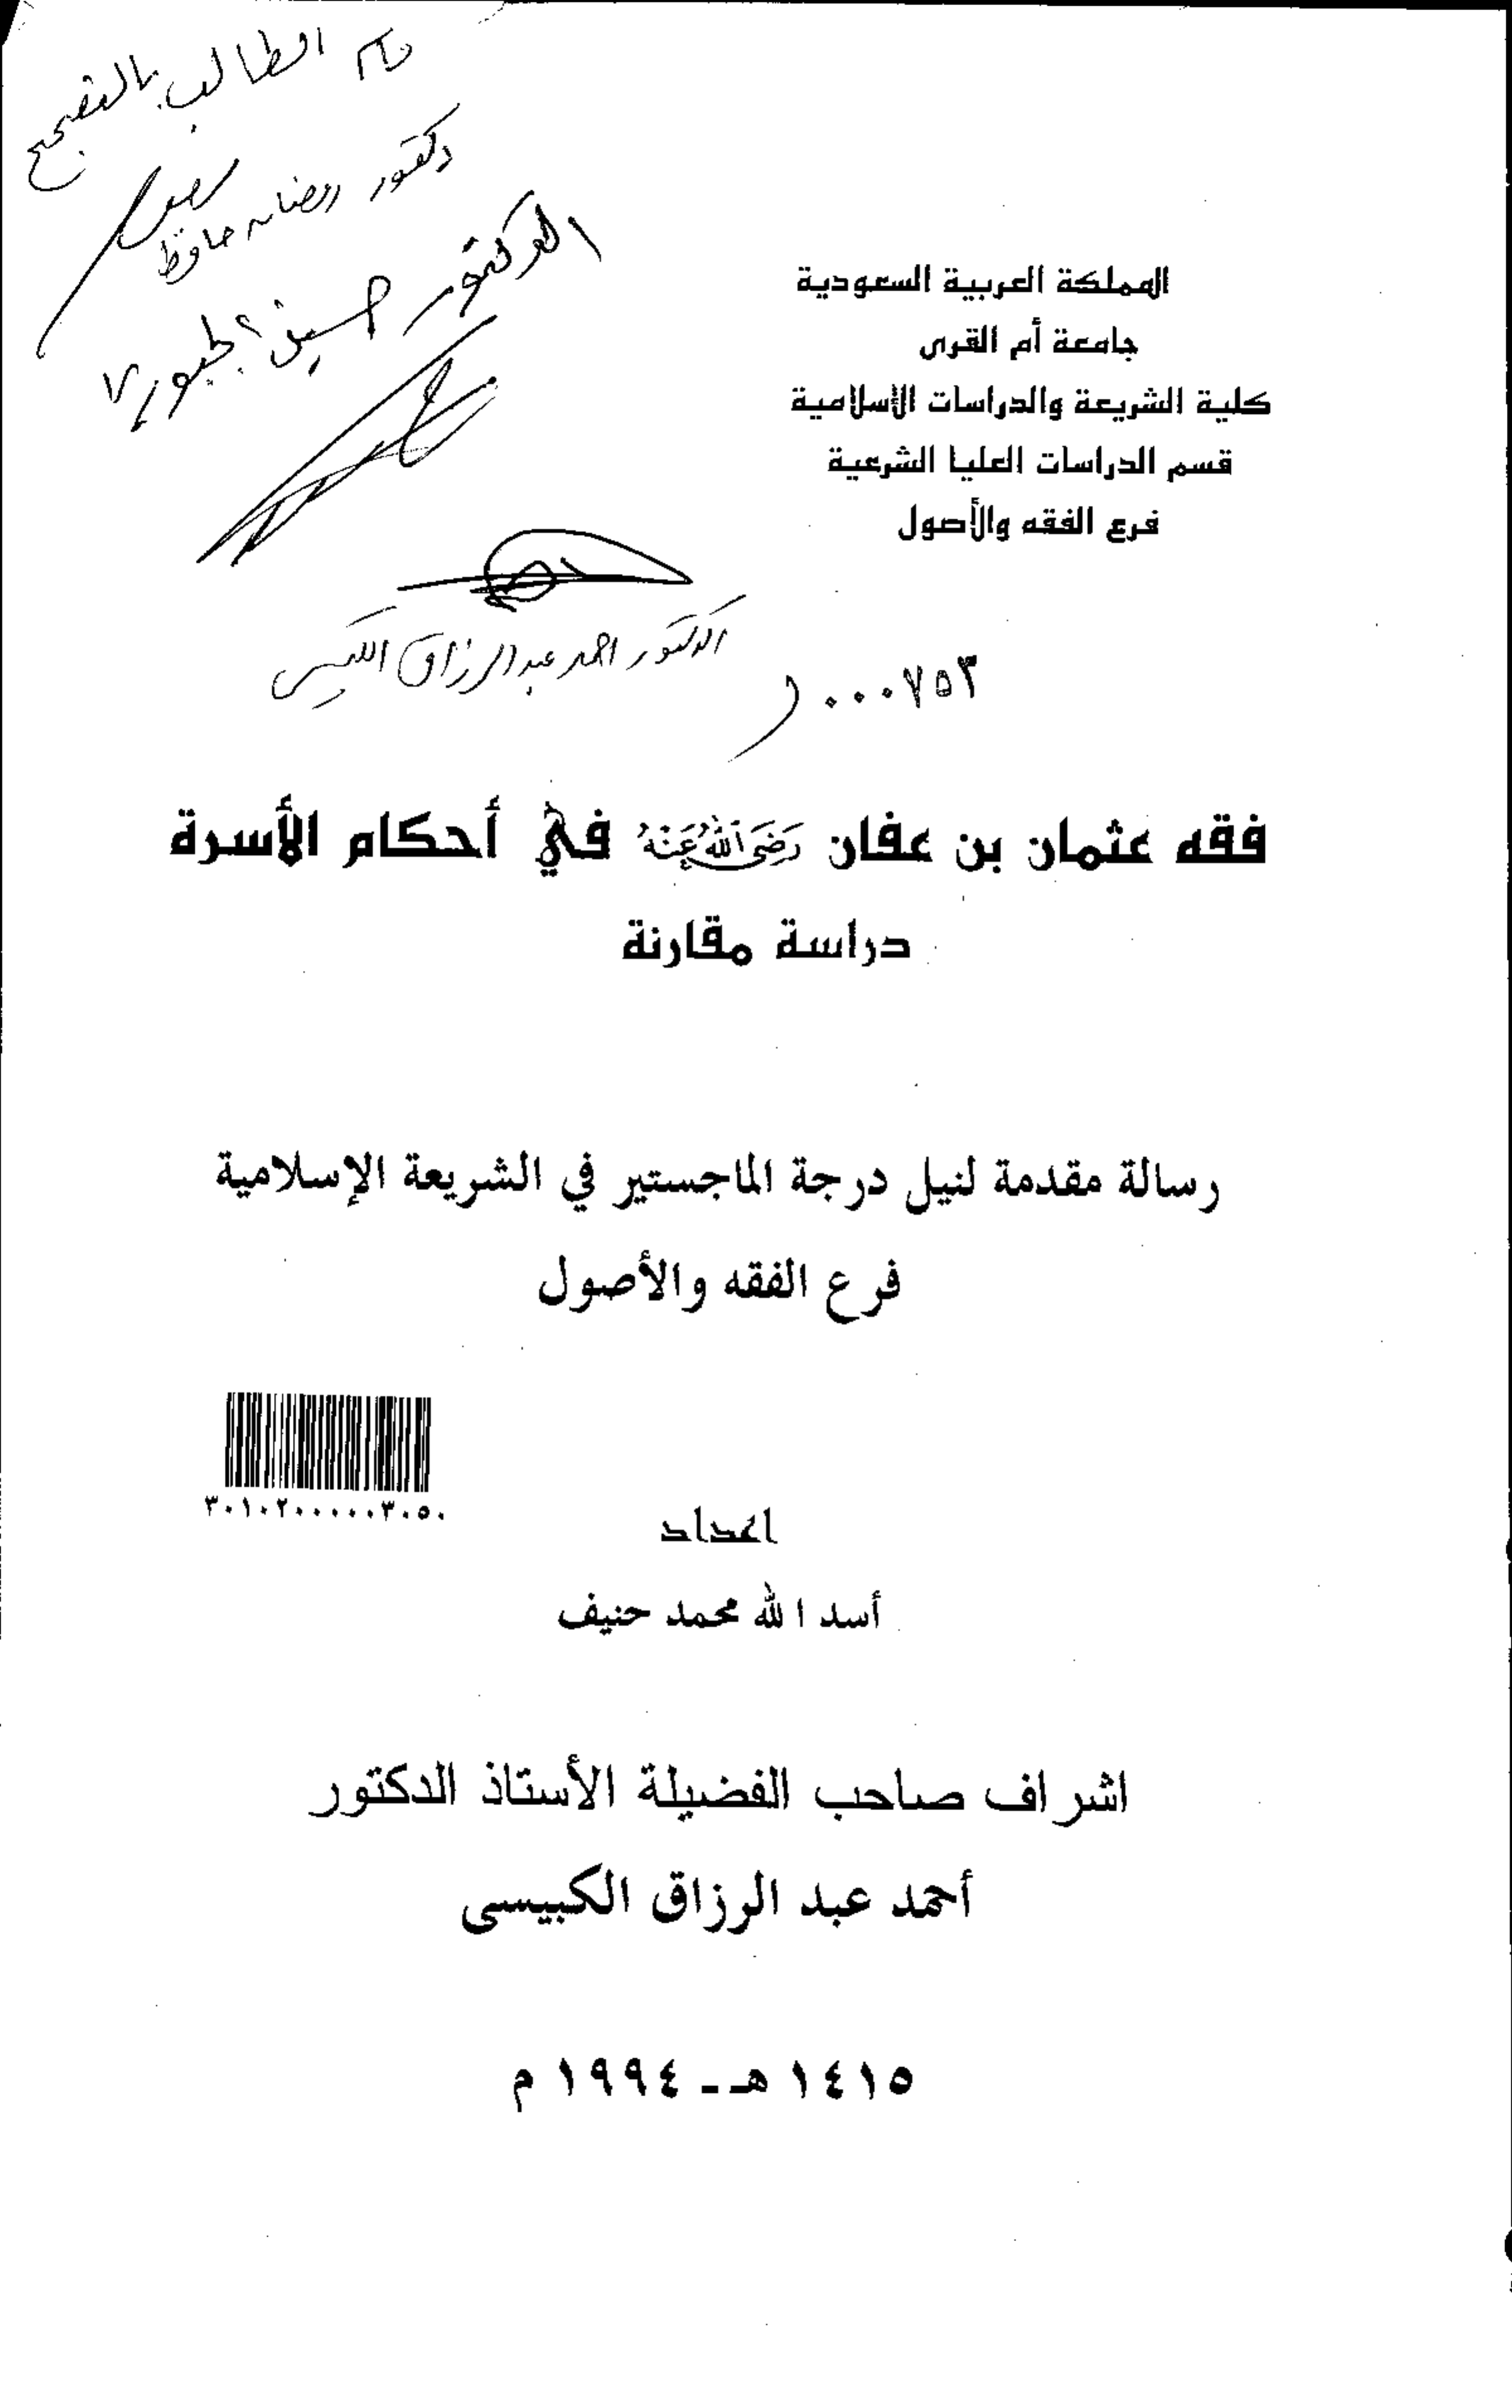 قام الطالب بالتصحيح
دكتور رمضان حافظ
الدكتور حسين الجبوري
المملكة العربية السعودية
جامعة أم القرى
كلية الشريعة والدراسات الإسلامية
قسم الدراسات العليا الشرعية
فرع الفقه والأصول
الدكتور احمد عبدالرزاق الكبيسي
٠٠٠٧٥٣
فقه عثمان بن عفان رَضِيَ اللهُ عَنْهُ في أحكام الأسرة
دراسة مقارنة
رسالة مقدمة لنيل درجة الماجستير في الشريعة الإسلامية
فرع الفقه والأصول
٣٠١٠٢٠٠٠٠٠٣٠٥٠
اعداد
أسد الله محمد حنيف
اشراف صاحب الفضيلة الأستاذ الدكتور
أحمد عبد الرزاق الكبيسى
١٤١٥ هـ ـ ١٩٩٤ م